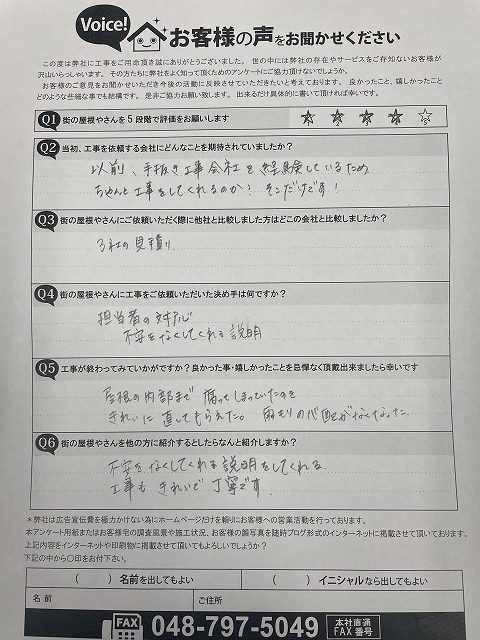 Voice!
お客様の声をお聞かせください
この度は弊社に工事をご用命頂き誠にありがとうございました。世の中には弊社の存在やサービスをご存知ないお客様が
沢山いらっしゃいます。その方たちに弊社をよく知って頂くためのアンケートにご協力頂けないでしょうか。
お客様のご意見をお聞かせいただき今後の活動に反映させていただきたいと考えております。良かったこと、嬉しかったこと
どのような些細な事でも結構です。是非ご協力お願い致します。出来るだけ具体的に書いて頂ければ幸いです。
Q1 街の屋根やさんを5段階で評価をお願いします
Q2 当初、工事を依頼する会社にどんなことを期待されていましたか？
以前、手抜き工事会社を経験しているため
ちゃんと工事をしてくれるのか？そこだけです！
Q3 街の屋根やさんにご依頼いただく際に他社と比較しました方はどこの会社と比較しましたか？
3社の見積り
Q4 街の屋根やさんに工事をご依頼いただいた決め手は何ですか？
担当者の対応
不安をなくしてくれる説明
Q5 工事が終わってみていかがですか？良かった事・嬉しかったことを忌憚なく頂戴出来ましたら幸いです
屋根の内部まで腐ってしまっていたのを
きれいに直してもらえた。雨もりの心配がなくなった。
Q6 街の屋根やさんを他の方に紹介するとしたらなんと紹介しますか？
不安をなくしてくれる説明をしてくれる
工事もきれいで丁寧です。
＊弊社は広告宣伝費を極力かけない為にホームページだけを頼りにお客様への営業活動を行っております。
本アンケート用紙またはお客様宅の調査風景や施工状況、お客様の顔写真を随時ブログ形式のインターネットに掲載させて頂いております。
上記内容をインターネットや印刷物に掲載させて頂いてもよろしいでしょうか？
下記の中から〇印をお付下さい。
（　　）名前を出してもよい （　　）イニシャルなら出してもよい
名前 ご住所
FAX 048-797-5049 本社直通FAX番号